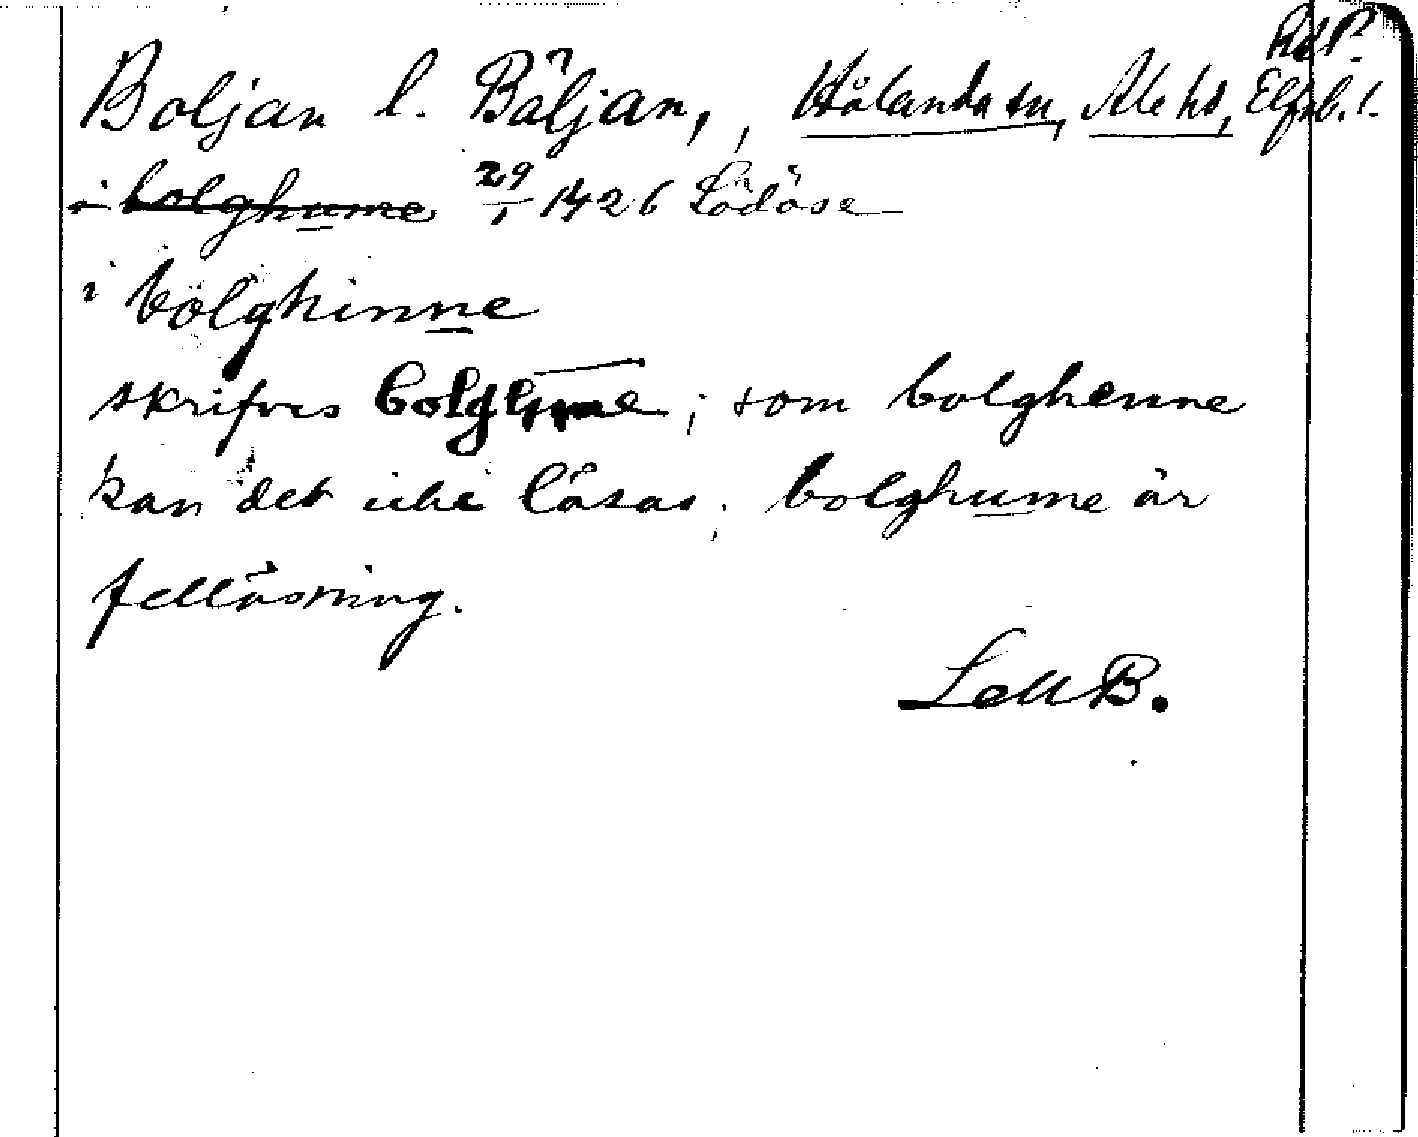 RAP.
Boljan l. Böljan, Hålanda sn, Ale hd, Elfsb. l.
i bolghume 29/1 1426 Lödöse
i bölghinne
skrifves bolghme; som bolghenne
kan det icke läsas. bolghume är
felläsning.